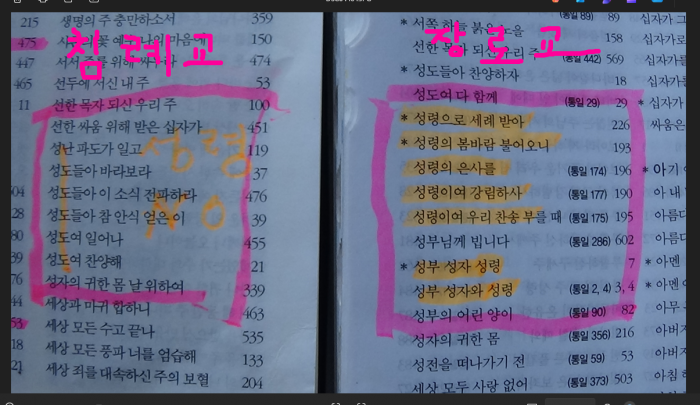 침례교
215 생명의 주 충만하소서 359
475 150
447 474
465 선두에 서신 내 주 53
11 선한 목자 되신 우리 주 100
선한 싸움 위해 받은 십자가 451
성난 파도가 일고 119
성도들아 바라보라 37
성도들아 이 소식 전파하라 476
28 성도들아 참 안식 얻은 이 39
80 성도여 일어나 455
39 성도여 찬양해 21
76 성자의 귀한 몸 날 위하여 339
44 세상과 마귀 합하니 463
53 세상 모든 수고 끝나 535
18 세상 모든 풍파 너를 엄습해 133
21 세상 죄를 대속하신 주의 보혈 204
성령
NO
장로교
* 서쪽 하늘 붉은 노을 (통일 89) 89 십자가 그
선한 목자 되신 우리 주 158 십자가로
(통일 442) 569 십자가를
* 성도들아 찬양하자 18 십자가
성도여 다 함께 (통일 29) 29 * 십자가
* 성령으로 세례 받아 226 싸움은
* 성령의 봄바람 불어오니 193
성령의 은사를 (통일 174) 196 * 아기
성령이여 강림하사 (통일 177) 190 아 내
성령이여 우리 찬송 부를 때 (통일 175) 195 아름다
성부님께 빕니다 (통일 286) 602 아름
* 성부 성자 성령 7 * 아멘
성부 성자와 성령 (통일 2, 4) 3, 4 * 아멘
성부의 어린 양이 (통일 90) 82 아무
성자의 귀한 몸 (통일 356) 216 아버지
성전을 떠나가기 전 (통일 59) 53 아버지
세상 모두 사랑 없어 (통일 373) 503 아침